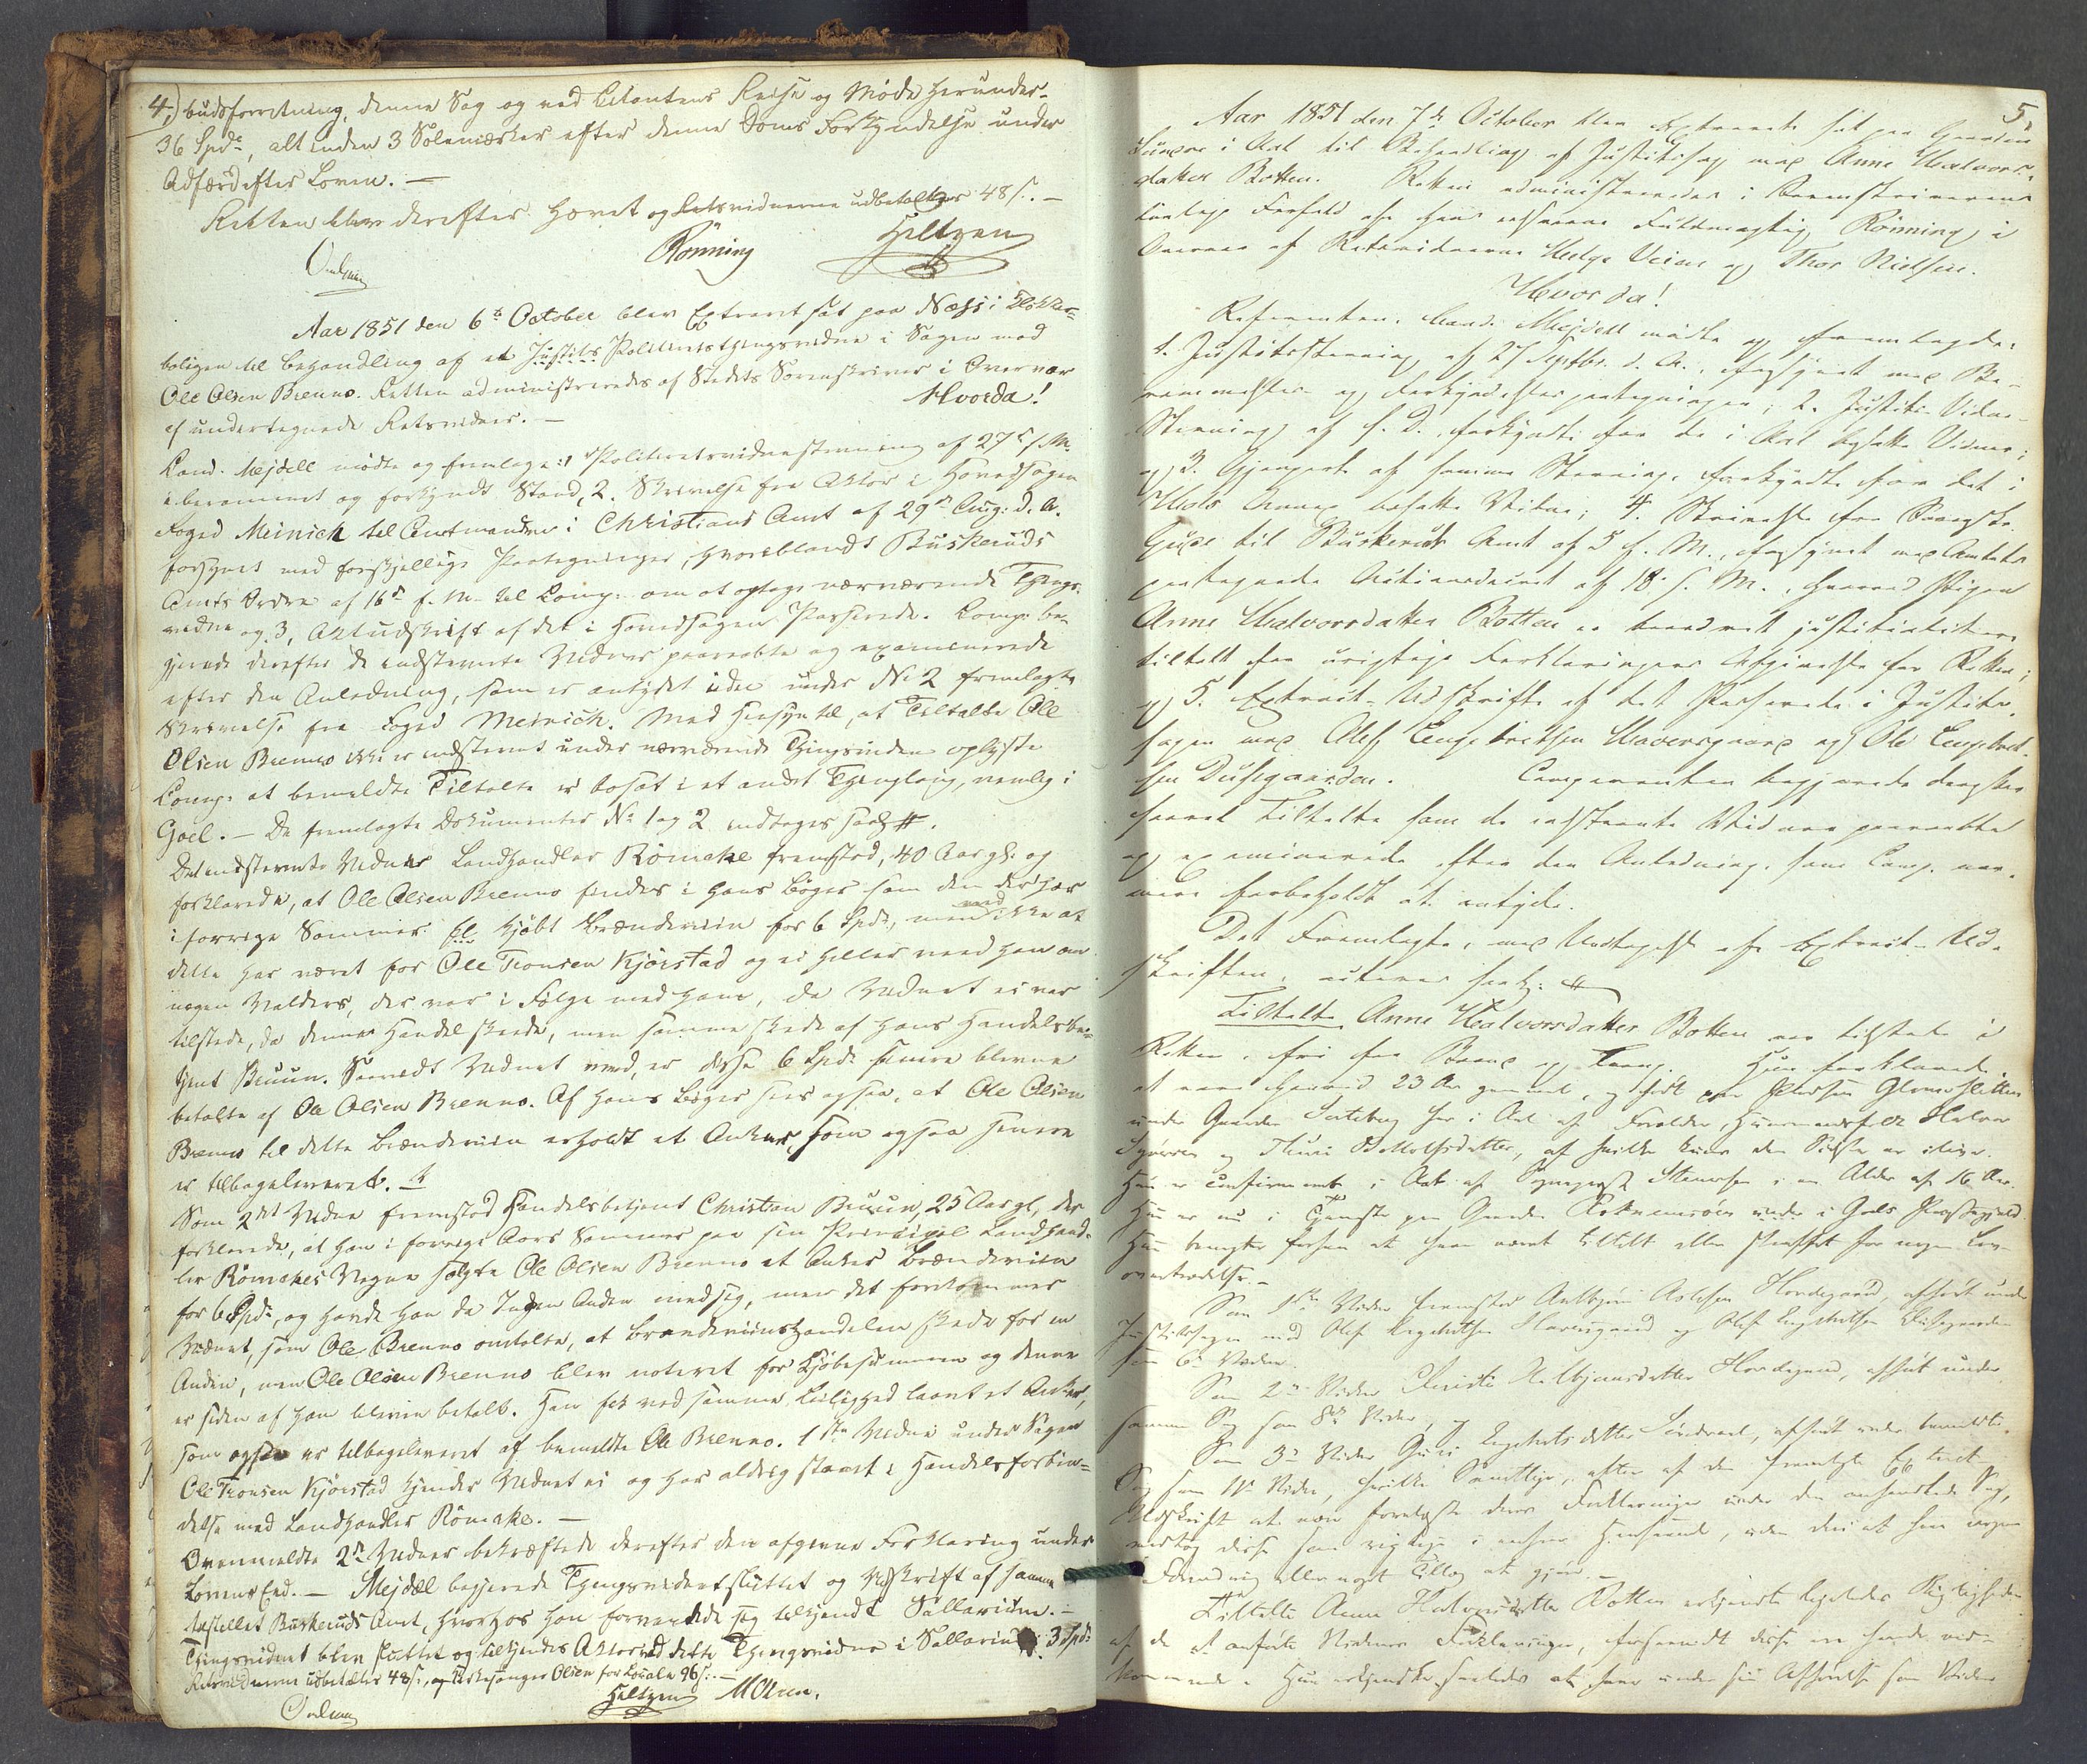 4.) budsforretning, denne Sag og ved Citantens Reise og Møde herunder
36 Spd, alt inden 3 Solemærker efter denne Doms Forkyndelse under
Adfærd efter Loven. —
Retten blev derefter hævet og Retsvidnerne udbetaltes 48 s. —
Rönning Heltzen
Aar 1851 den 6te October blev Extraret sat paa Næss i Klokker-
boligen til Behandling af et Justits Politiretsthingsvidne i Sagen mod
Ole Olsen Brenno. Retten administreredes af Stedets Sorenskriver i Overvær
af undertegnede Retsvidner. — Hvorda!
Cand. Mejdell mødte og fremlagde: 1 Politiretsvidnestevning af 27de f. M.
i berammet og forkyndt Stand, 2. Skrivelse fra Aktor i Hovedsagen
Foged Meinich til Amtmanden i Christians Amt af 29de Aug. d. A.
forsynet med forskjellige Paategninger, hvoriblandt Buskeruds
Amts Ordre af 16de f. M. til Comp. om at optage nærværende Things-
vidne og 3, Aktudskrift af det i Hovedsagen Passerede. Comp. be-
gjerede derefter de indstevnte Vidner paaraabte og examinerede
efter den Anledning, som er antydet i den under No 2 fremlagte
Skrivelse fra Foged Meinich. Med Hensyn til, at Tiltalte Ole
Olsen Brenno ikke er indstevnt under nærværende Thingsvidne oplyste
Comp. at bemeldte Tiltalte er bosat i et andet Thinglaug, nemlig i
Goel. — De fremlagte Dokumenter No 1 og 2 indtages saal.
Det indstevnte Vidne Landhandler Römcke fremstod, 40 Aar gl. og
forklarede, at Ole Olsen Brenno findes i hans Bøger som den der har
i forrige Sommer kjøbt Brændeviin for 6 Spd, men ikke at
dette har været for Ole Tronsen Kjörstad og ei heller veed han om
nogen Valders, der var i Følge med ham, da Vidnet ei var
tilstede, da denne Handel skeede, men samme skede af hans Handelsbe-
tjent Bruun. Saavidt Vidnet veed, er disse 6 Spd senere blevne
betalte af Ole Olsen Brenno. Af hans Bøger sees ogsaa, at Ole Olsen
Brenno til dette Brændeviin erholdt et Anker, som ogsaa senere
er tilbageleveret.
Som 2det Vidne fremstod Handelsbetjent Christian Bruun, 25 Aar gl, der
forklarede, at han i forrige Aars Sommer paa sin Principal Landhand-
ler Römckes Vegne solgte Ole Olsen Brenno et Anker Brændeviin
for 6 Spd, og havde han da Ingen Anden med sig, men det forekommer
Vidnet, som Ole Brenno omtalte, at Brændeviinshandelen skede for en
Anden, men Ole Olsen Brenno blev noteret for Kjøbesummen og denne
er siden af ham bleven betalt. Han fik ved samme Leilighed laant et Anker,
som ogsaa er tilbageleveret af bemeldte Ole Brenno. 1ste Vidne under Sagen
Ole Tronsen Kjörstad kjender Vidnet ei og har aldrig staaet i Handelsforbin-
delse med Landhandler Römcke. —
Ovenmeldte 2de Vidner bekræftede derefter den afgivne Forklaring under
Lovens Eed. — Mejdell begjerede Thingsvidnet sluttet og Udskrift af samme
tilstillet Buskeruds Amt, hvorhos han forventede sig tilkjendt Sallarium. —
Thingsvidnet blev sluttet og tilkjendes Aktor ved dette Thingsvidne i Sallarium 3 Spd
Retsvidnerne udbetaltes 48 s, og Kirkesanger Olsen for Locale 96 s. —
Heltzen M Olsen.
5.
Aar 1851 den 7de October blev Extraret sat paa Gaarden
Sundre i Aal til Behandling af Justitssag mod Anne Halvors-
datter Botten. Retten administreredes i Sorenskriverens
lovlige Forfald af hans Fuldmægtig Rønning i
Overvær af Retsvidnerne Helge Veien og Thor Nielsen.
Hvorda!
Referenten, Cand. Mejdell mødte og fremlagde:
1. Justitsstevning af 27 Septbr. d. A., forsynet med Be-
rammelses og Forkyndelses paategninger; 2. Justits Vidne-
Stevning af s. D., forkyndt for de i Aal bosatte Vidner;
og 3. Gjenpart af samme Stevning, forkyndt for det i
Hols Annex bosatte Vidne; 4. Skrivelse fra Sorenskr.
til Buskeruds Amt af 5 f. M., forsynet med Amtets
paategnede Actionsordre af 18. s. M., hvorved Pigen
Anne Halvorsdatter Botten er beordret justitialiter
tiltalt for urigtige Forklaringers Afgivelse for Retten;
og 5. Extract-Udskrift af det Passerede i Justits-
sagen mod Olef Engebrethsen Haversgaard og Ole Engebret-
sen Dusegaarden. Comparenten begjerede derefter
saavel Tiltalte som de indstevnte Vidner paaraabte
og examinerede efter den Anledning, som Comp. nær-
mere forbeholdt at antyde.
Det Fremlagte, med Undtagelse af Extract-Ud-
skriften, saal:
Tiltalte Anne Halvorsdatter Botten var tilstede i
Retten, fri for Baand og Tvang. Hun forklarede
at være henved 23 Aar gammel, og født paa Pladsen
under Gaarden her i Aal af Forældre, Huusmandsfolk Halvor
og Thuri, af hvilke kun den Sidste er ilive.
Hun er confirmeret i Aal af Sogneprest i en Alder af 16 Aar.
Hun er nu i Tjeneste paa Gaarden i Gols Præstegjeld.
Hun benegter forhen at have været tiltalt eller straffet for nogen Lov-
overtrædelse. —
Som 1ste Vidne fremstod Asleksen, afhørt under
Justitssagen mod Olef Engebrethsen Haversgaard og Olef Engebrethsen Dusegaarden
som 6te Vidne.
Som 2det Vidne, afhørt under
samme Sag som 8de Vidne, og
Som 3de Vidne Guri Engebretsdatter, afhørt under bemeldte
Sag som Vidne, hvilke Samtlige, efter af den fremlagte Extract-
Udskrift at være forelæste deres Forklaringer under den anhændede Sag,
vedtog disse som rigtige i enhver Henseende, uden deri at have nogen
Forandring eller noget Tillæg at gjøre. —
Tiltalte Anne Halvorsdatter Botten erkjendte ligeledes Rigtigheden
af de af anførte Vidner Forklaringer, forsaavidt disse ere hende ved-
kommende. Hun erkjendte saaledes at have under sin Afhørelse som Vidne